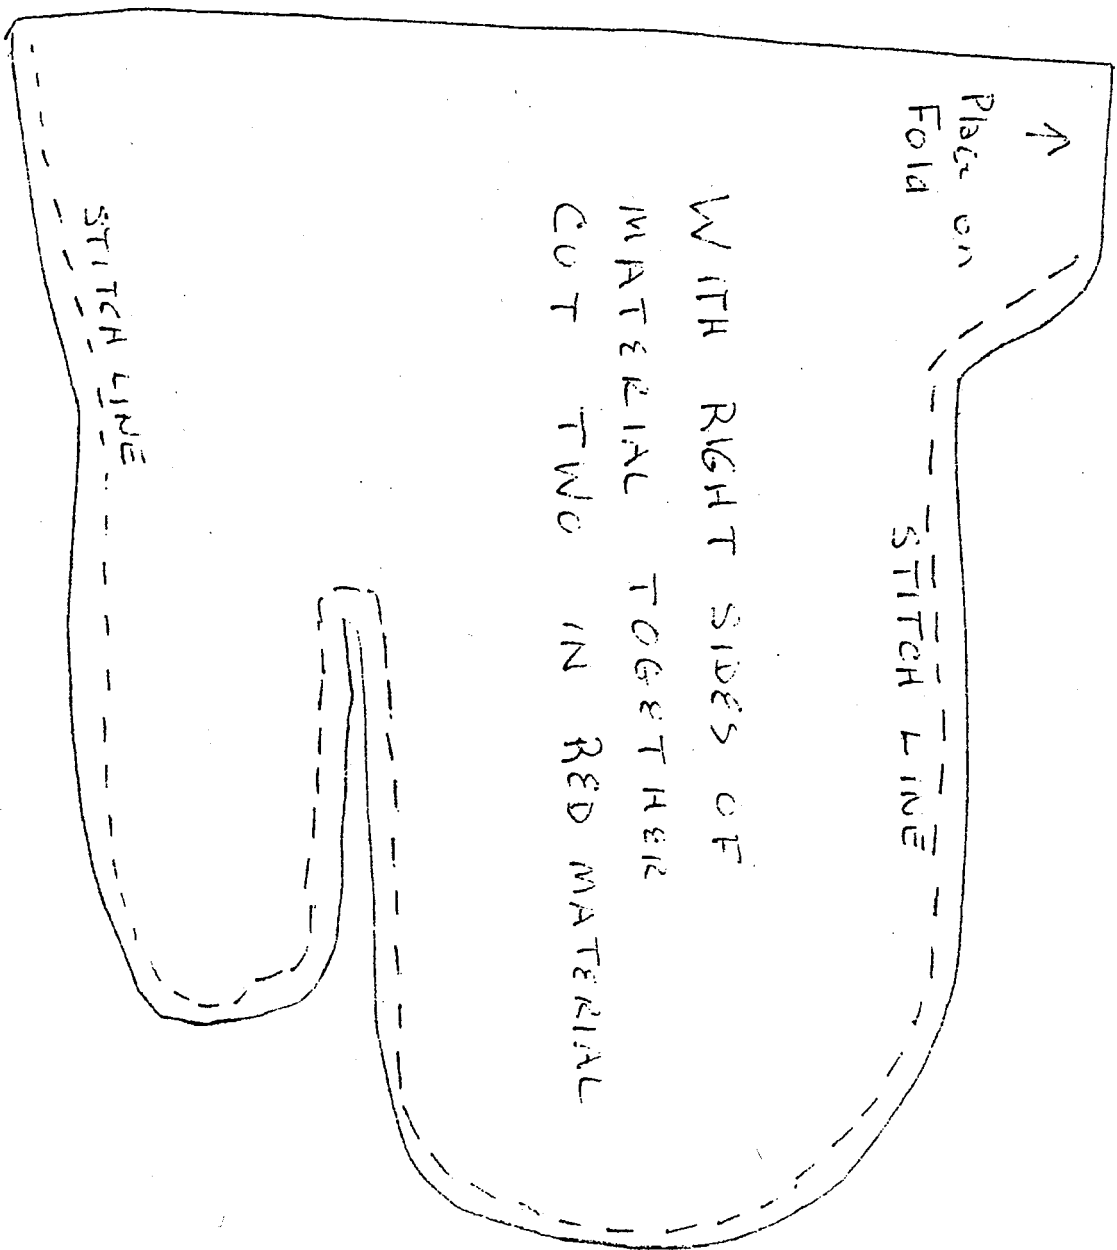 Place on
Fold
STITCH LINE
WITH RIGHT SIDES OF
MATERIAL TOGETHER
CUT TWO IN RED MATERIAL
STITCH LINE